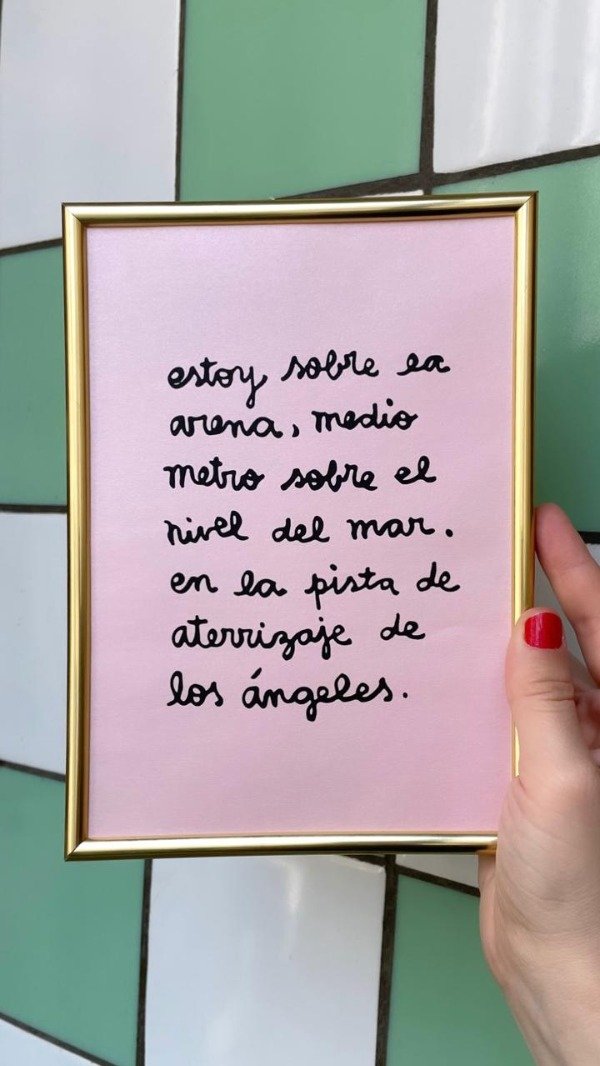 estoy sobre la
arena, medio
metro sobre el
nivel del mar.
en la pista de
aterrizaje de
los ángeles.